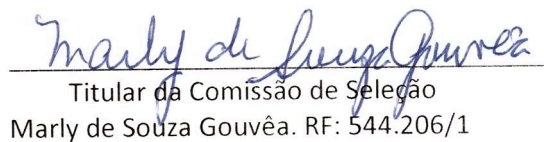 Marly de Souza Gouvêa
Titular da Comissão de Seleção
Marly de Souza Gouvêa. RF: 544.206/1